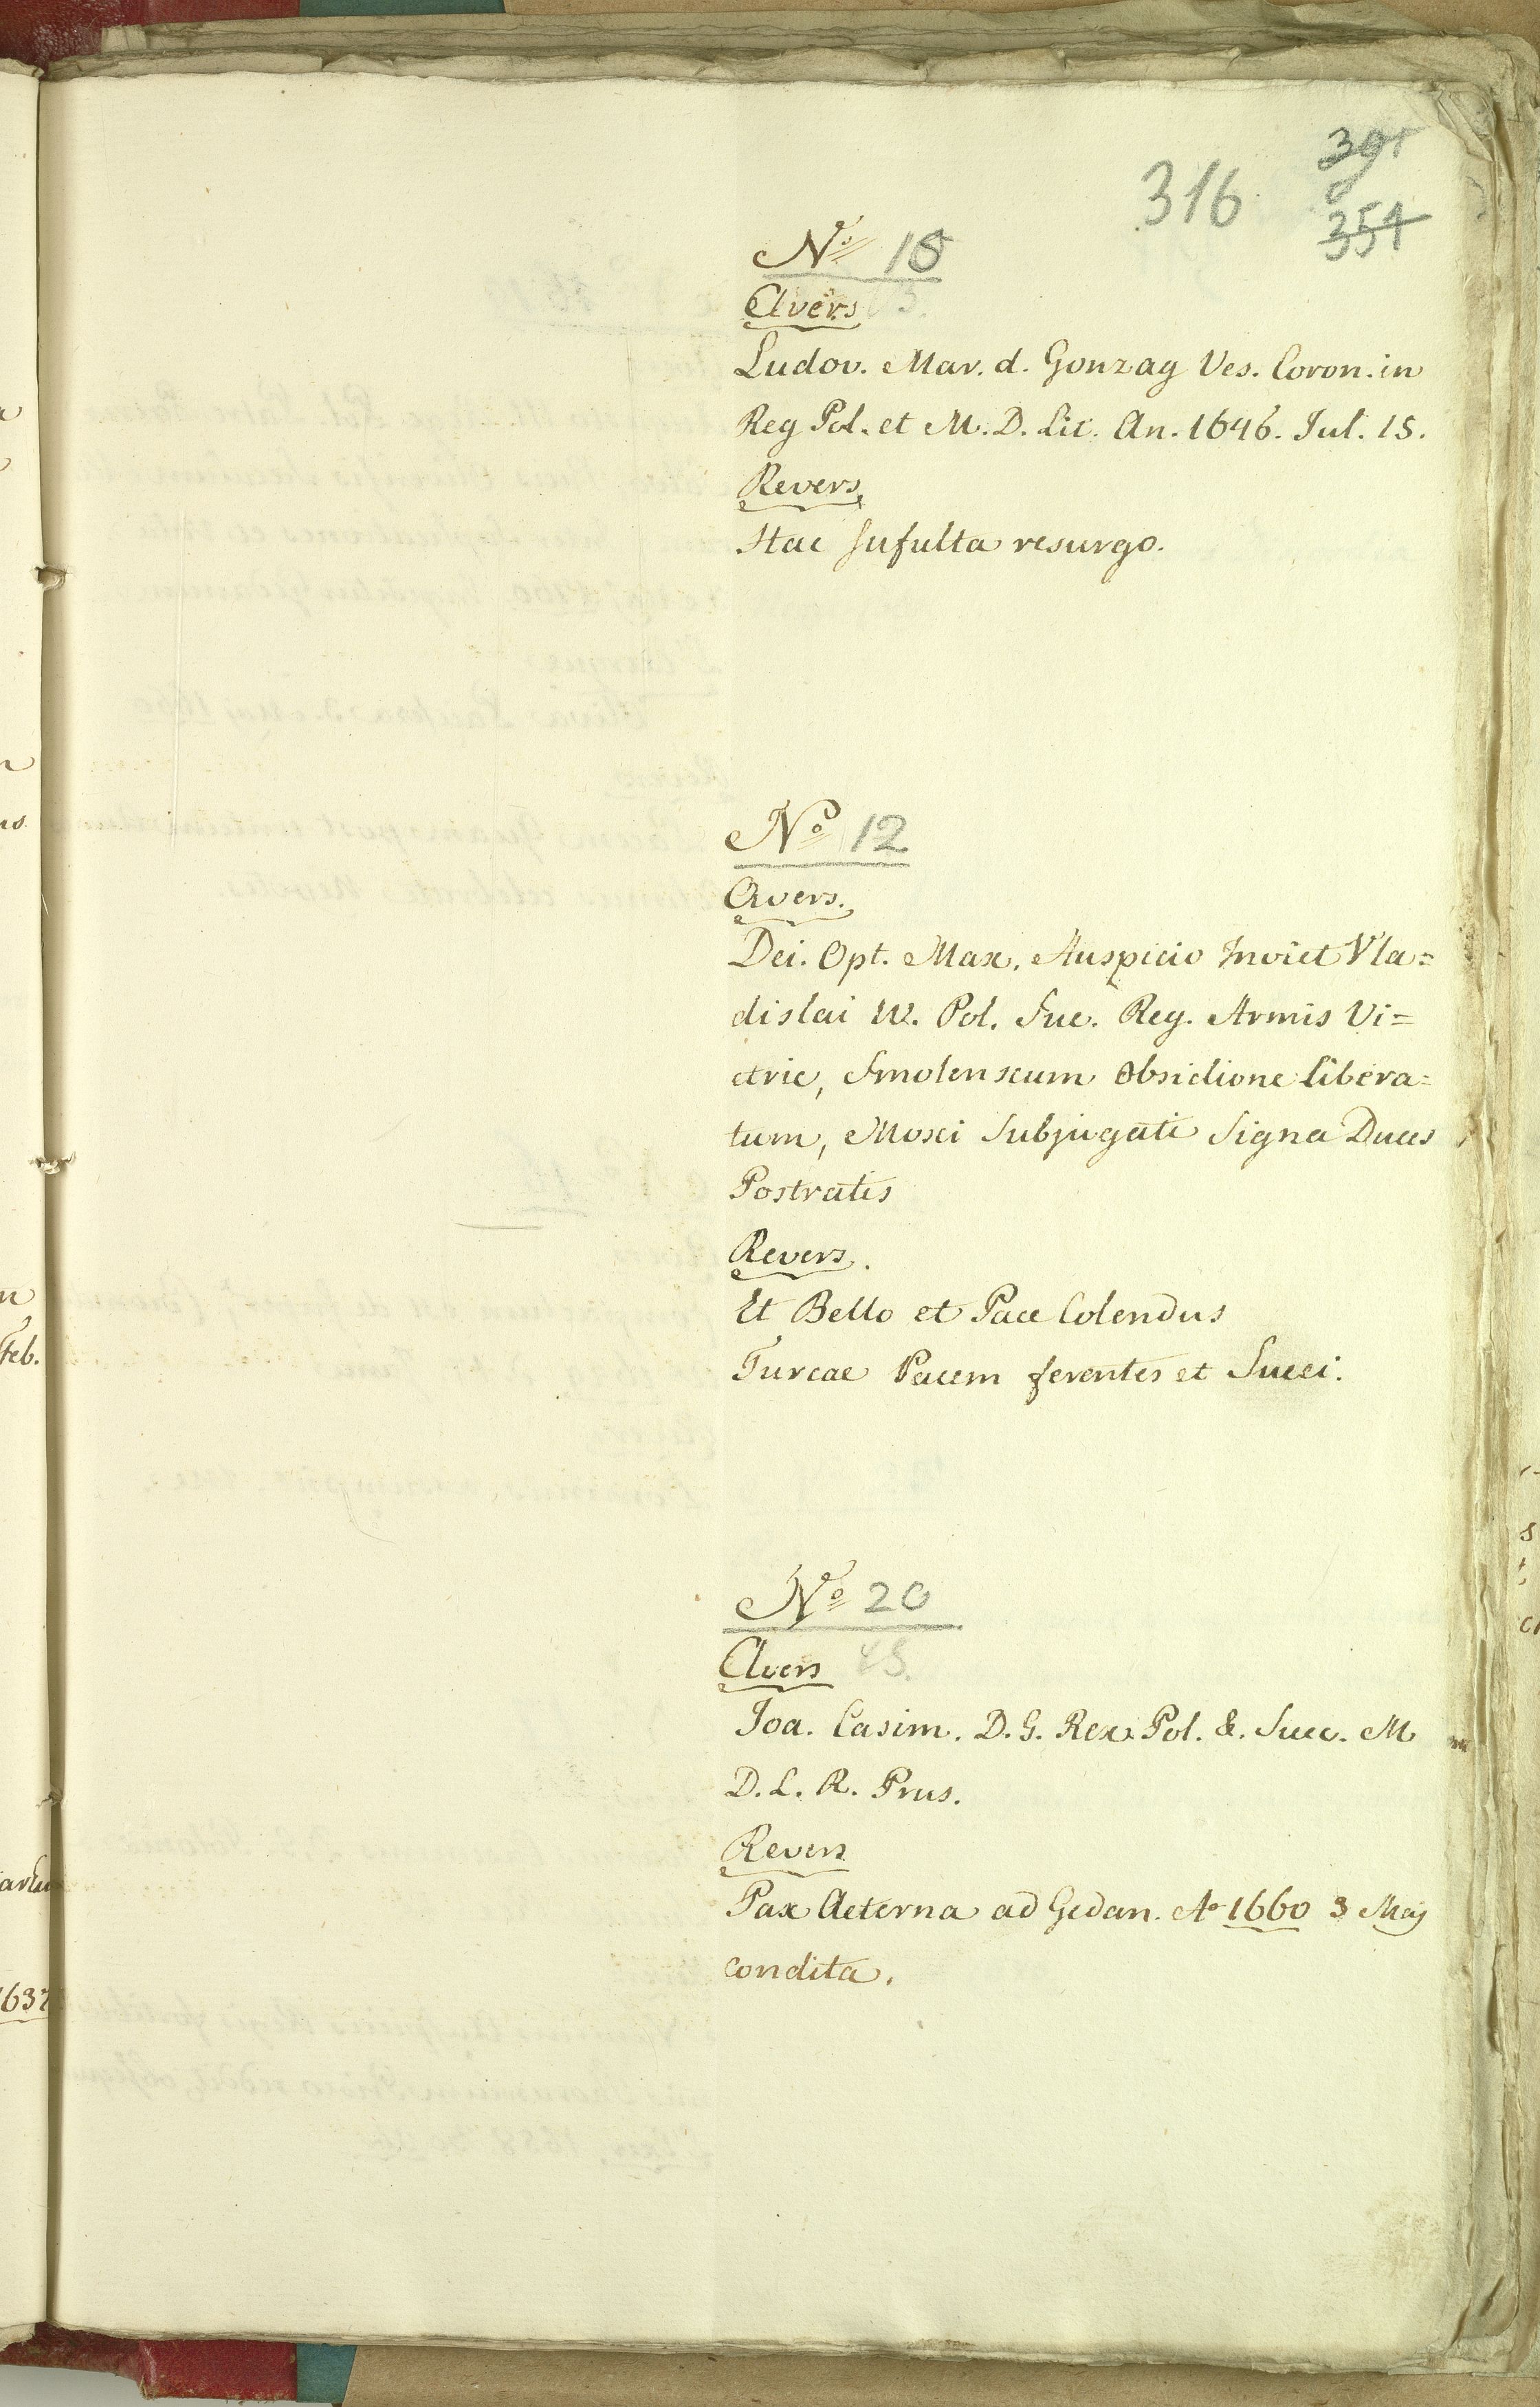 316
354
No 18
Avers
Ludov. Mar. d. Gonzag Ves. Coron. in
Reg Pol. et M. D. Lit. An. 1646. Jul. 15.
Revers
Hac sufulta resurgo.
No 12
Avers.
Dei. Opt. Max. Auspicio Invict Vla=
dislai IV. Pol. Sue. Reg. Armis Vi=
ctric, Smolenscum Obsidione libera=
tum, Mosci Subjugati Signa Duces
Postratis
Revers.
Et Bello et Pace Colendus
Turcae Pacem ferentes et Sueci.
No 20
Avers
Joa. Casim. D. G. Rex Pol. &. Suec. M
D. L. R. Prus.
Revers
Pax Aeterna ad Gedan. Ao 1660 3 Maj
condita.